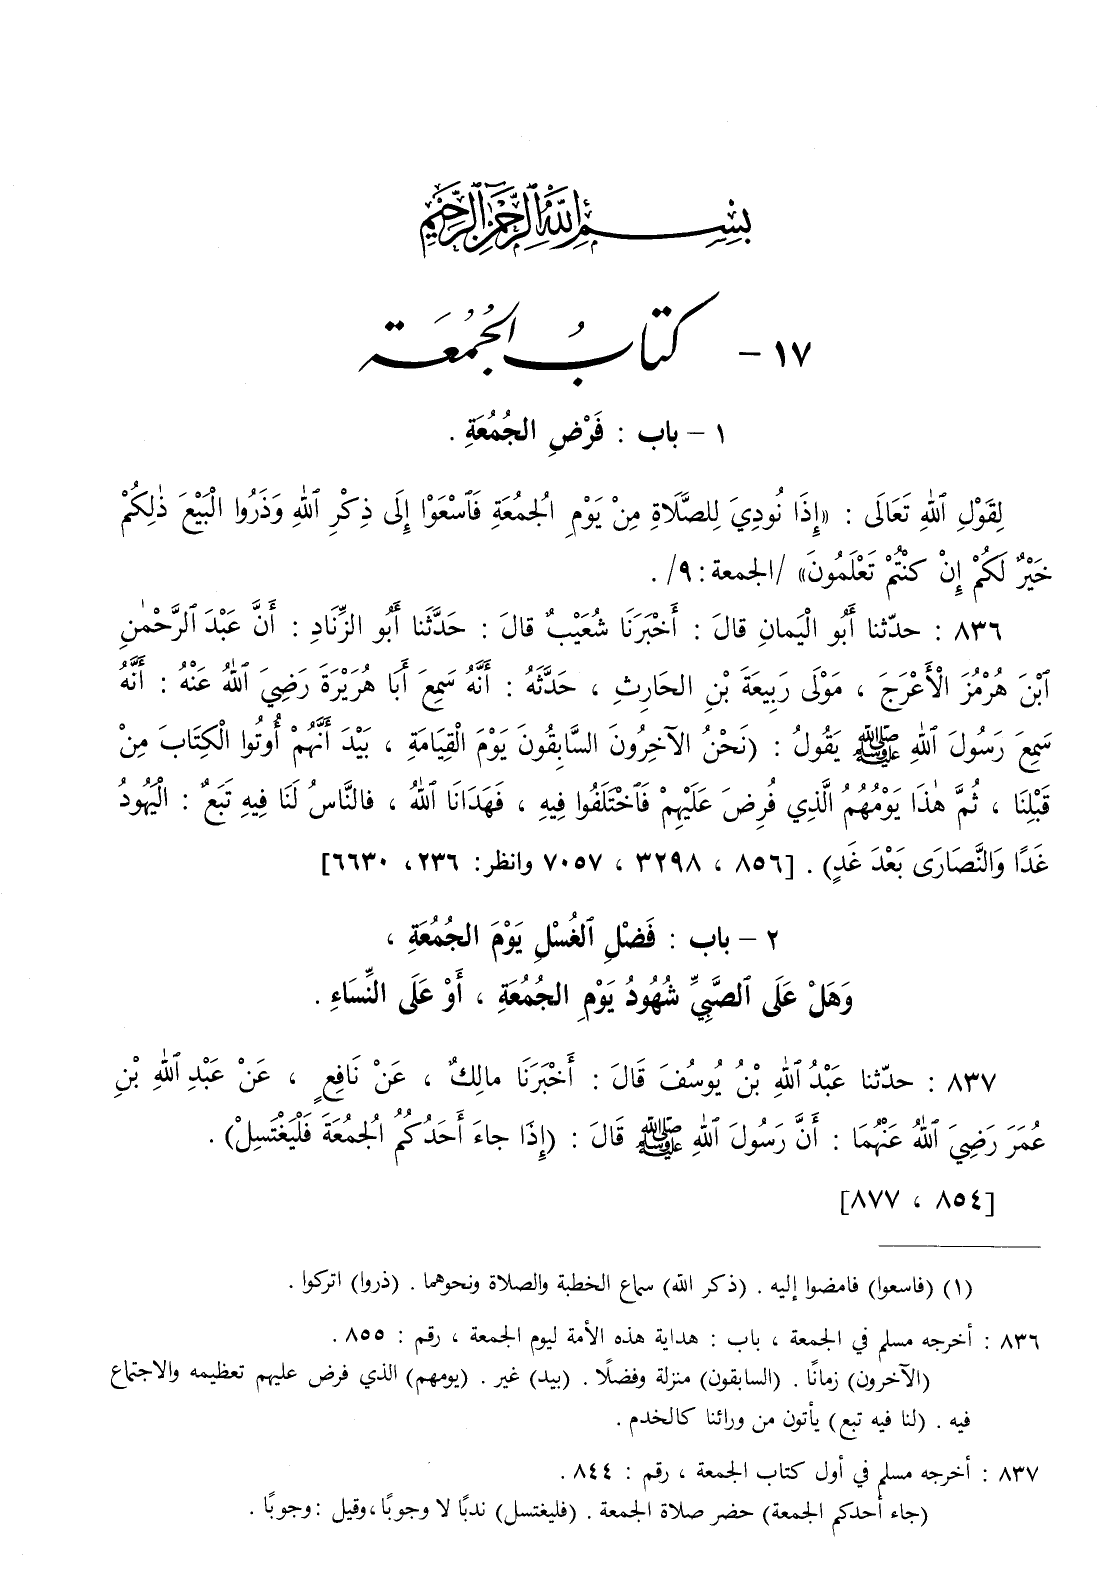 بِسْمِ اللَّهِ الرَّحْمَٰنِ الرَّحِيمِ
١٧ - كِتَابُ الجُمُعَة
١ - باب : فَرْضِ الجُمُعَةِ .
لِقَوْلِ ٱللهِ تَعَالَى : «إِذَا نُودِيَ لِلصَّلَاةِ مِنْ يَوْمِ الجُمُعَةِ فَٱسْعَوْا إِلَى ذِكْرِ ٱللهِ وَذَرُوا الْبَيْعَ ذٰلِكُمْ
خَيْرٌ لَكُمْ إِنْ كُنْتُمْ تَعْلَمُونَ» /الجمعة: ٩/ .
٨٣٦ : حدّثنا أَبُو الْيَمانِ قالَ : أَخْبَرَنَا شُعَيْبٌ قالَ : حَدَّثَنَا أَبُو الزِّنَادِ : أَنَّ عَبْدَ ٱلرَّحْمٰنِ
ٱبْنَ هُرْمُزَ الْأَعْرَجَ ، مَوْلَى رَبِيعَةَ بْنِ الحَارِثِ ، حَدَّثَهُ : أَنَّهُ سَمِعَ أَبَا هُرَيْرَةَ رَضِيَ ٱللهُ عَنْهُ : أَنَّهُ
سَمِعَ رَسُولَ ٱللهِ ﷺ يَقُولُ : (نَحْنُ الآخِرُونَ السَّابِقُونَ يَوْمَ الْقِيَامَةِ ، بَيْدَ أَنَّهُمْ أُوتُوا الْكِتَابَ مِنْ
قَبْلِنَا ، ثُمَّ هٰذَا يَوْمُهُمُ الَّذِي فُرِضَ عَلَيْهِمْ فَٱخْتَلَفُوا فِيهِ ، فَهَدَانَا ٱللهُ ، فالنَّاسُ لَنَا فِيهِ تَبَعٌ : الْيَهُودُ
غَدًا وَالنَّصَارَى بَعْدَ غَدٍ) . [٨٥٦ ، ٣٢٩٨ ، ٧٠٥٧ وانظر: ٢٣٦، ٦٦٣٠]
٢ - باب : فَضْلِ ٱلغُسْلِ يَوْمَ الجُمُعَةِ ،
وَهَلْ عَلَى ٱلصَّبِيِّ شُهُودُ يَوْمِ الجُمُعَةِ ، أَوْ عَلَى النِّسَاءِ .
٨٣٧ : حدّثنا عَبْدُ ٱللهِ بْنُ يُوسُفَ قَالَ : أَخْبَرَنَا مالِكٌ ، عَنْ نَافِعٍ ، عَنْ عَبْدِ ٱللهِ بْنِ
عُمَرَ رَضِيَ ٱللهُ عَنْهُمَا : أَنَّ رَسُولَ ٱللهِ ﷺ قَالَ : (إِذَا جاءَ أَحَدُكُمُ الجُمُعَةَ فَلْيَغْتَسِلْ) .
[٨٥٤ ، ٨٧٧]
(١) (فاسعوا) فامضوا إليه . (ذكر الله) سماع الخطبة والصلاة ونحوهما . (ذروا) اتركوا .
٨٣٦ : أخرجه مسلم في الجمعة ، باب : هداية هذه الأمة ليوم الجمعة ، رقم : ٨٥٥ .
(الآخرون) زمانًا . (السابقون) منزلة وفضلًا . (بيد) غير . (يومهم) الذي فرض عليهم تعظيمه والاجتماع
فيه . (لنا فيه تبع) يأتون من ورائنا كالخدم .
٨٣٧ : أخرجه مسلم في أول كتاب الجمعة ، رقم : ٨٤٤ .
(جاء أحدكم الجمعة) حضر صلاة الجمعة . (فليغتسل) ندبًا لا وجوبًا ، وقيل : وجوبًا .